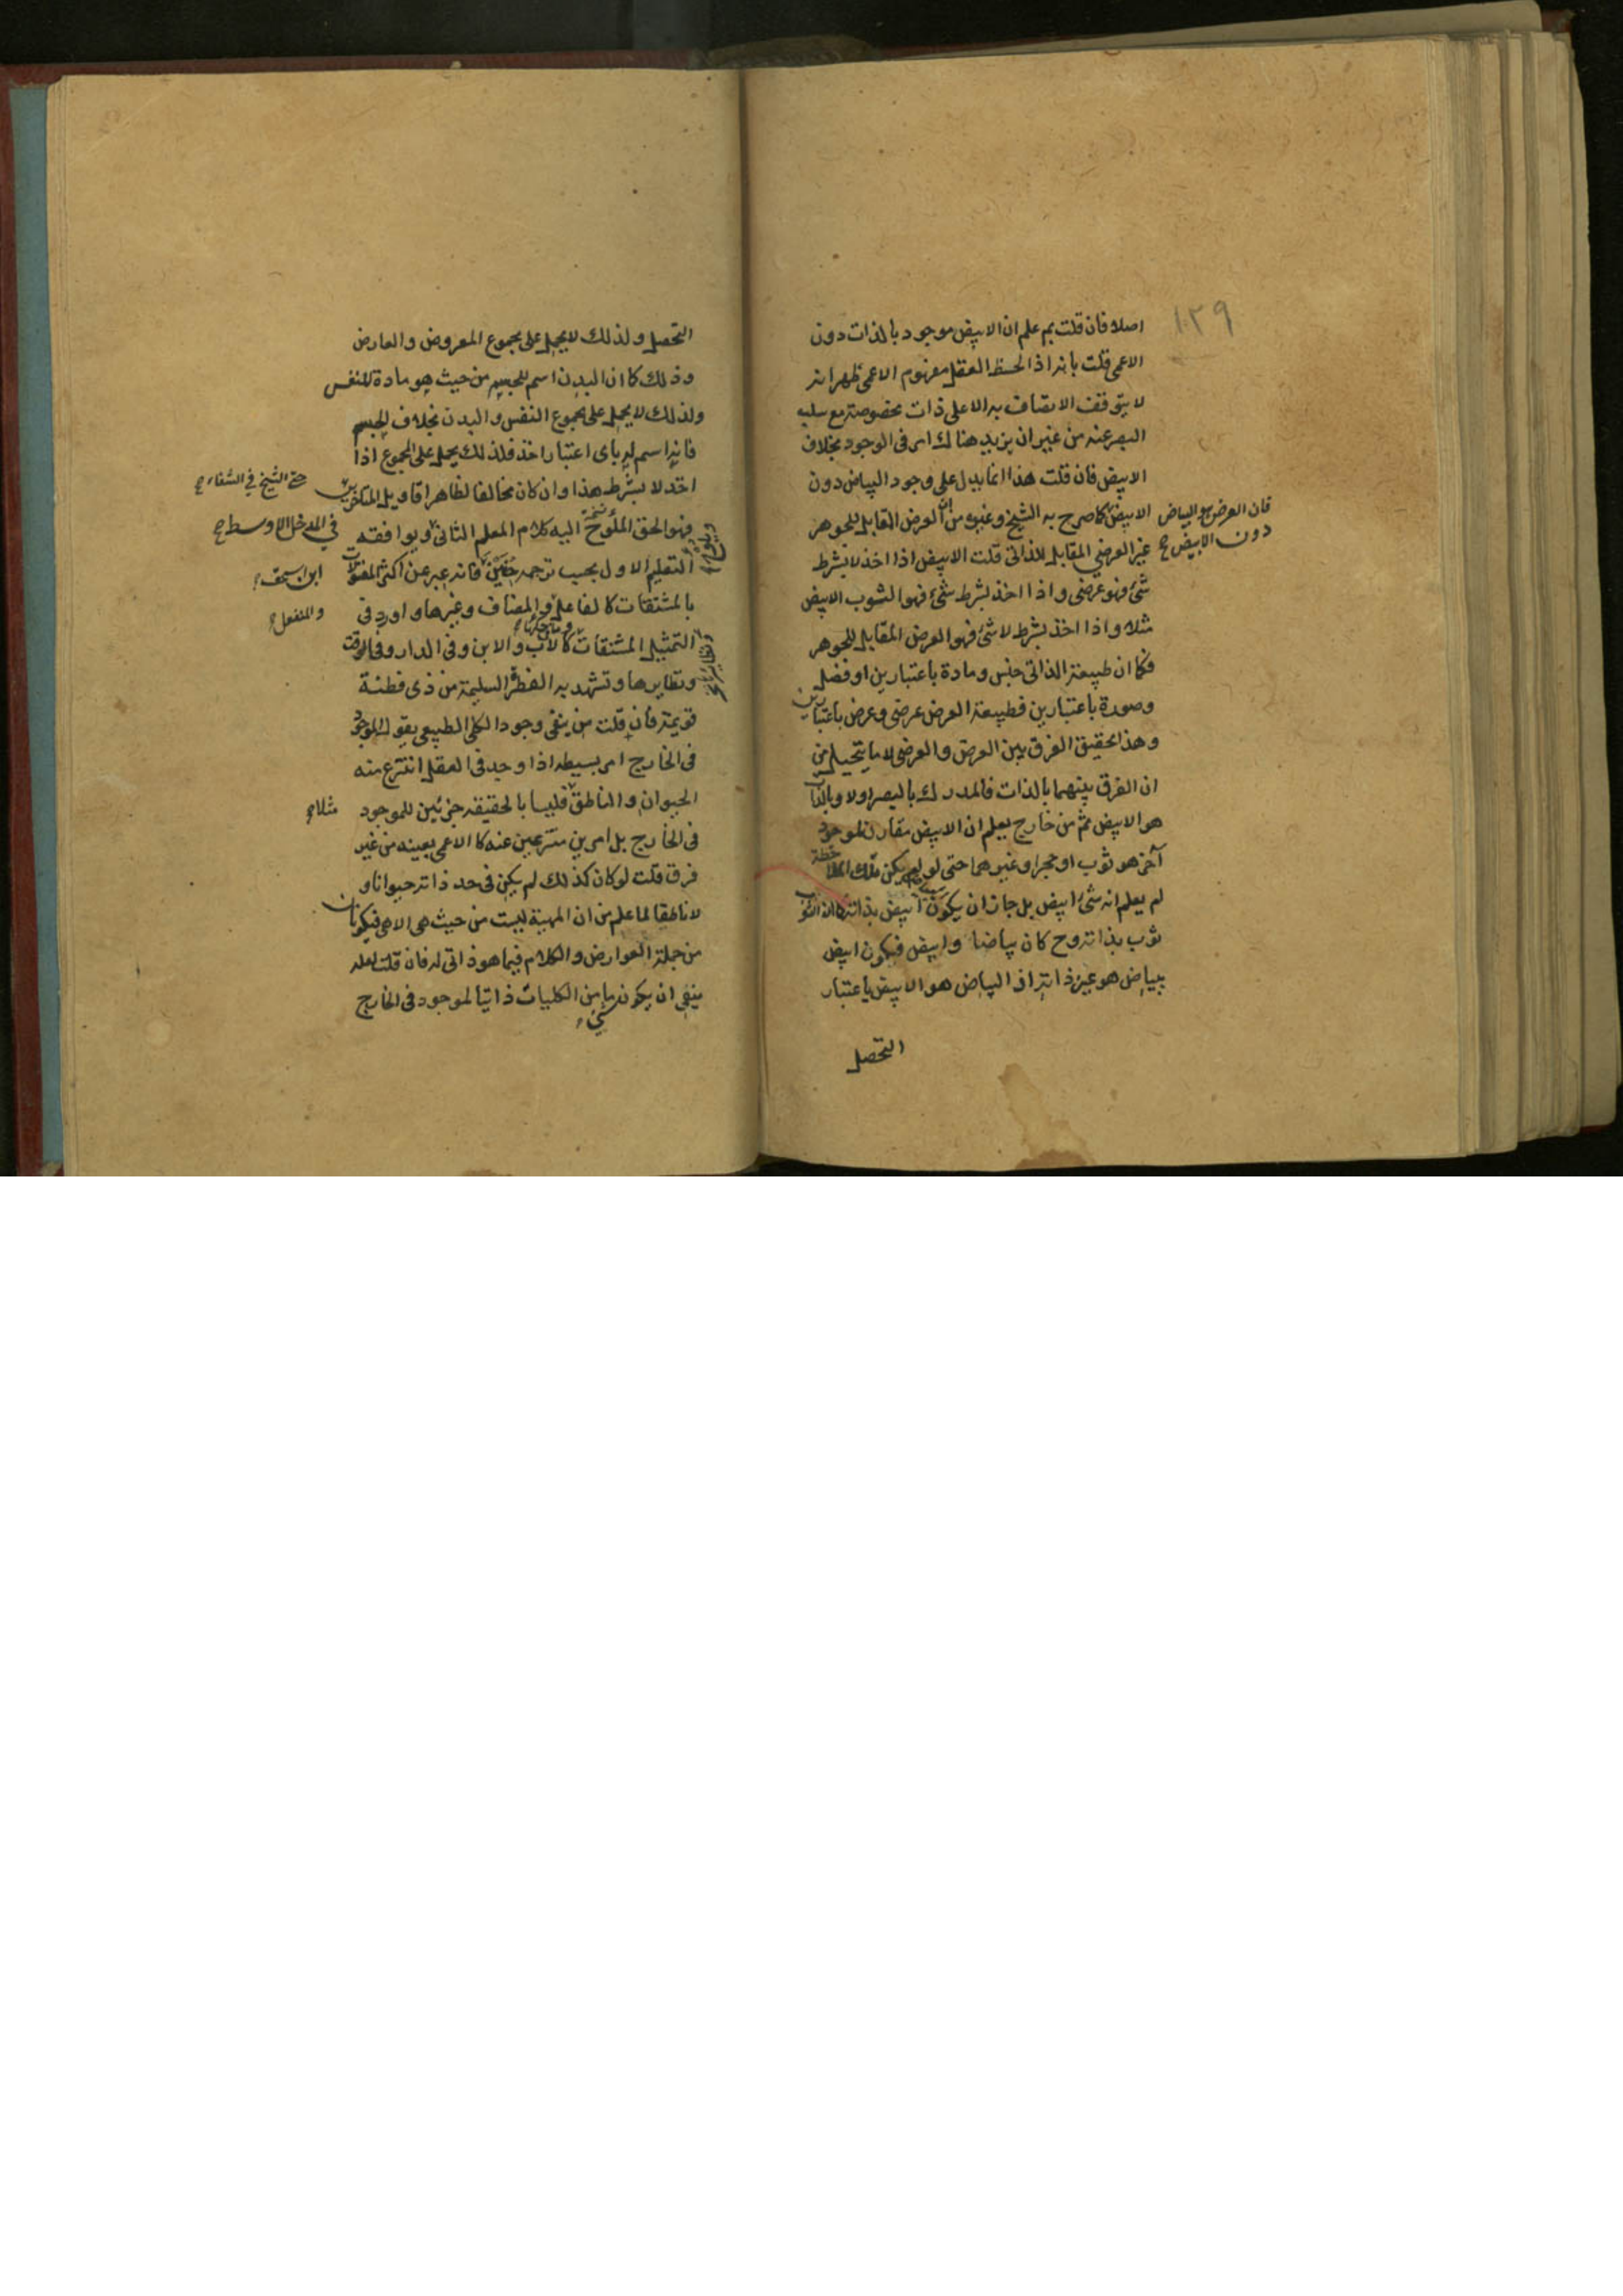 ١٣٩
اصلا فان قلت بم علم ان الابيض موجود بالذات دون
الاعمى قلت بانه اذا لاحظ العقل مفهوم الاعمى ظهر انه
لا يتوقف الاتصاف به الا على ذات مخصوصة مع سلب
البصر عنه من غير ان يزيد هناك امر فى الوجود بخلاف
الابيض فان قلت هذا انما يدل على وجود البياض دون
الابيض كما صرح به الشيخ وغيره من ان العرض المقابل للجوهر
فان العرض هو البياض
دون الابيض صح
غير العرضي المقابل للذاتى قلت الابيض اذا اخذ لا بشرط
شئ فهو عرضى و اذا اخذ بشرط شئ فهو الثوب الابيض
مثلا و اذا اخذ بشرط لا شئ فهو العرض المقابل للجوهر
فكما ان طبيعة الذاتى جنس و مادة باعتبارين او فصل
و صورة باعتبارين فطبيعة العرض عرضى و عرض باعتبارين
و هذا تحقيق الفرق بين العرض و العرضى لا ما يتخيل من
ان الفرق بينهما بالذات فالمدرك بالبصر اولا و بالذات
هو الابيض ثم من خارج يعلم ان الابيض مقارن لموجود
آخر هو ثوب او حجر او غيرهما حتى لو لم يكن تلك الملاحظة
لم يعلم انه شئ ابيض بل جاز ان يكون ابيض بذاته
ثوب بذاته وح كان بياضا و ابيض فيكون ابيض
ببياض هو عين ذاته اذ البياض هو الابيض باعتبار
التحصل
التحصل و لذلك لا يحمل على مجموع المعروض و العارض
و ذلك كما ان البدن اسم للجسم من حيث هو مادة للنفس
و لذلك لا يحمل على مجموع النفس و البدن بخلاف الجسم
فانه اسم له باى اعتبار اخذ فلذلك يحمل على المجموع اذا
اخذ لا بشرط هذا و ان كان مخالفا لظاهر اقاويل المتاخرين
حتى الشيخ في الشفاء صح
فهو الحق الملوح اليه كلام المعلم الثانى و يوافقه
في المدخل الاوسط صح
التعليم الاول بحسب ترجمة حنين فانه عبر عن اكثر المقولات
ابن اسحق صح
بالمشتقات كالفاعل و المضاف و غيرها و اورد فى
والمنفعل صح
التمثيل المشتقات كالاب و الابن و فى الدار و فى الوقت
و نظايرها و تشهد به الفطرة السليمة من ذى فطنة
قويمة فان قلت من ينفى وجود الكلى الطبيعى يقول الموجود
فى الخارج امر بسيط اذا وجد فى العقل انتزع منه
الحيوان و الناطق فليسا بالحقيقة جزئين للموجود
مثلا صح
فى الخارج بل امرين منتزعين عنه كالاعمى بعينه من غير
فرق قلت لو كان كذلك لم يكن فى حد ذاته حيوانا و
لا ناطقا لما علم من ان المهية ليست من حيث هى الا هى فيكونان
من جملة العوارض و الكلام فيما هو ذاتى له فان قلت لعله
ينفى ان يكون شيء من الكليات ذاتيا لموجود فى الخارج